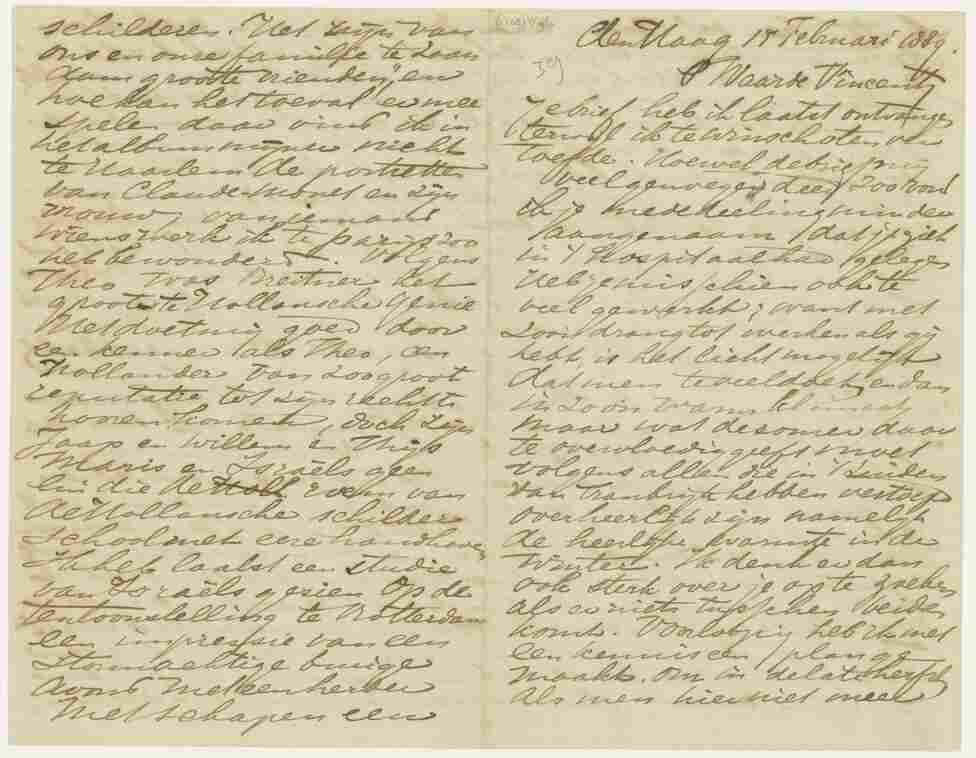 schilderen. Het zijn van
ons en onze familie te Zaan
dam groote vrienden, en
hoe kan het toeval er mee
spelen daar vind ik in
het album mijner nicht
te Haarlem de portretten
van Claude Monet en zijn
vrouw, van iemand
wiens werk ik te parijs zoo
heb bewonderd. Volgens
Theo was Breitner het
grootste Hollandsche genie
Het doet mij goed door
een kenner als Theo, een
Hollander van zoo groot
reputatie tot zijn recht
horen komen, doch zijn
Jaap en Willem en Thijs
Maris en Israëls geen
lui die de Holl roem van
de Hollandsche schilder
school met eere handhaven
Ik heb laatst een studie
van Israëls gezien op de
tentoonstelling te Rotterdam
een impressie van een
stormachtige buiige
avond met een herder
met schapen een
Den Haag 15 Februari 1889.
Waarde Vincent
Je brief heb ik laatst ontvangen
terwijl ik te Winschoten ver
toefde. Hoewel de brief mij
veel genoegen deed zoo vond
ik je mededeeling minder
aangenaam dat je ziek
in 't Hospitaal had gelegen
Heb je misschien ook te
veel gewerkt; want met
zoo'n drang tot werken als gij
hebt, is het licht mogelijk
dat men te veel doet, en dan
in zoo'n warm klimaat
maar wat de zomer daar
te overvloedig geeft moet
volgens allen die in 't Zuiden
van Frankrijk hebben vertoefd
overheerlijk zijn namelijk
de heerlijke warmte in den
Winter. Ik denk er dan
ook sterk over je op te zoeken
als er niets tusschen beiden
komt. Voorloopig heb ik met
een kennis een plan ge
maakt om in de late herfst
als men hier niet meer